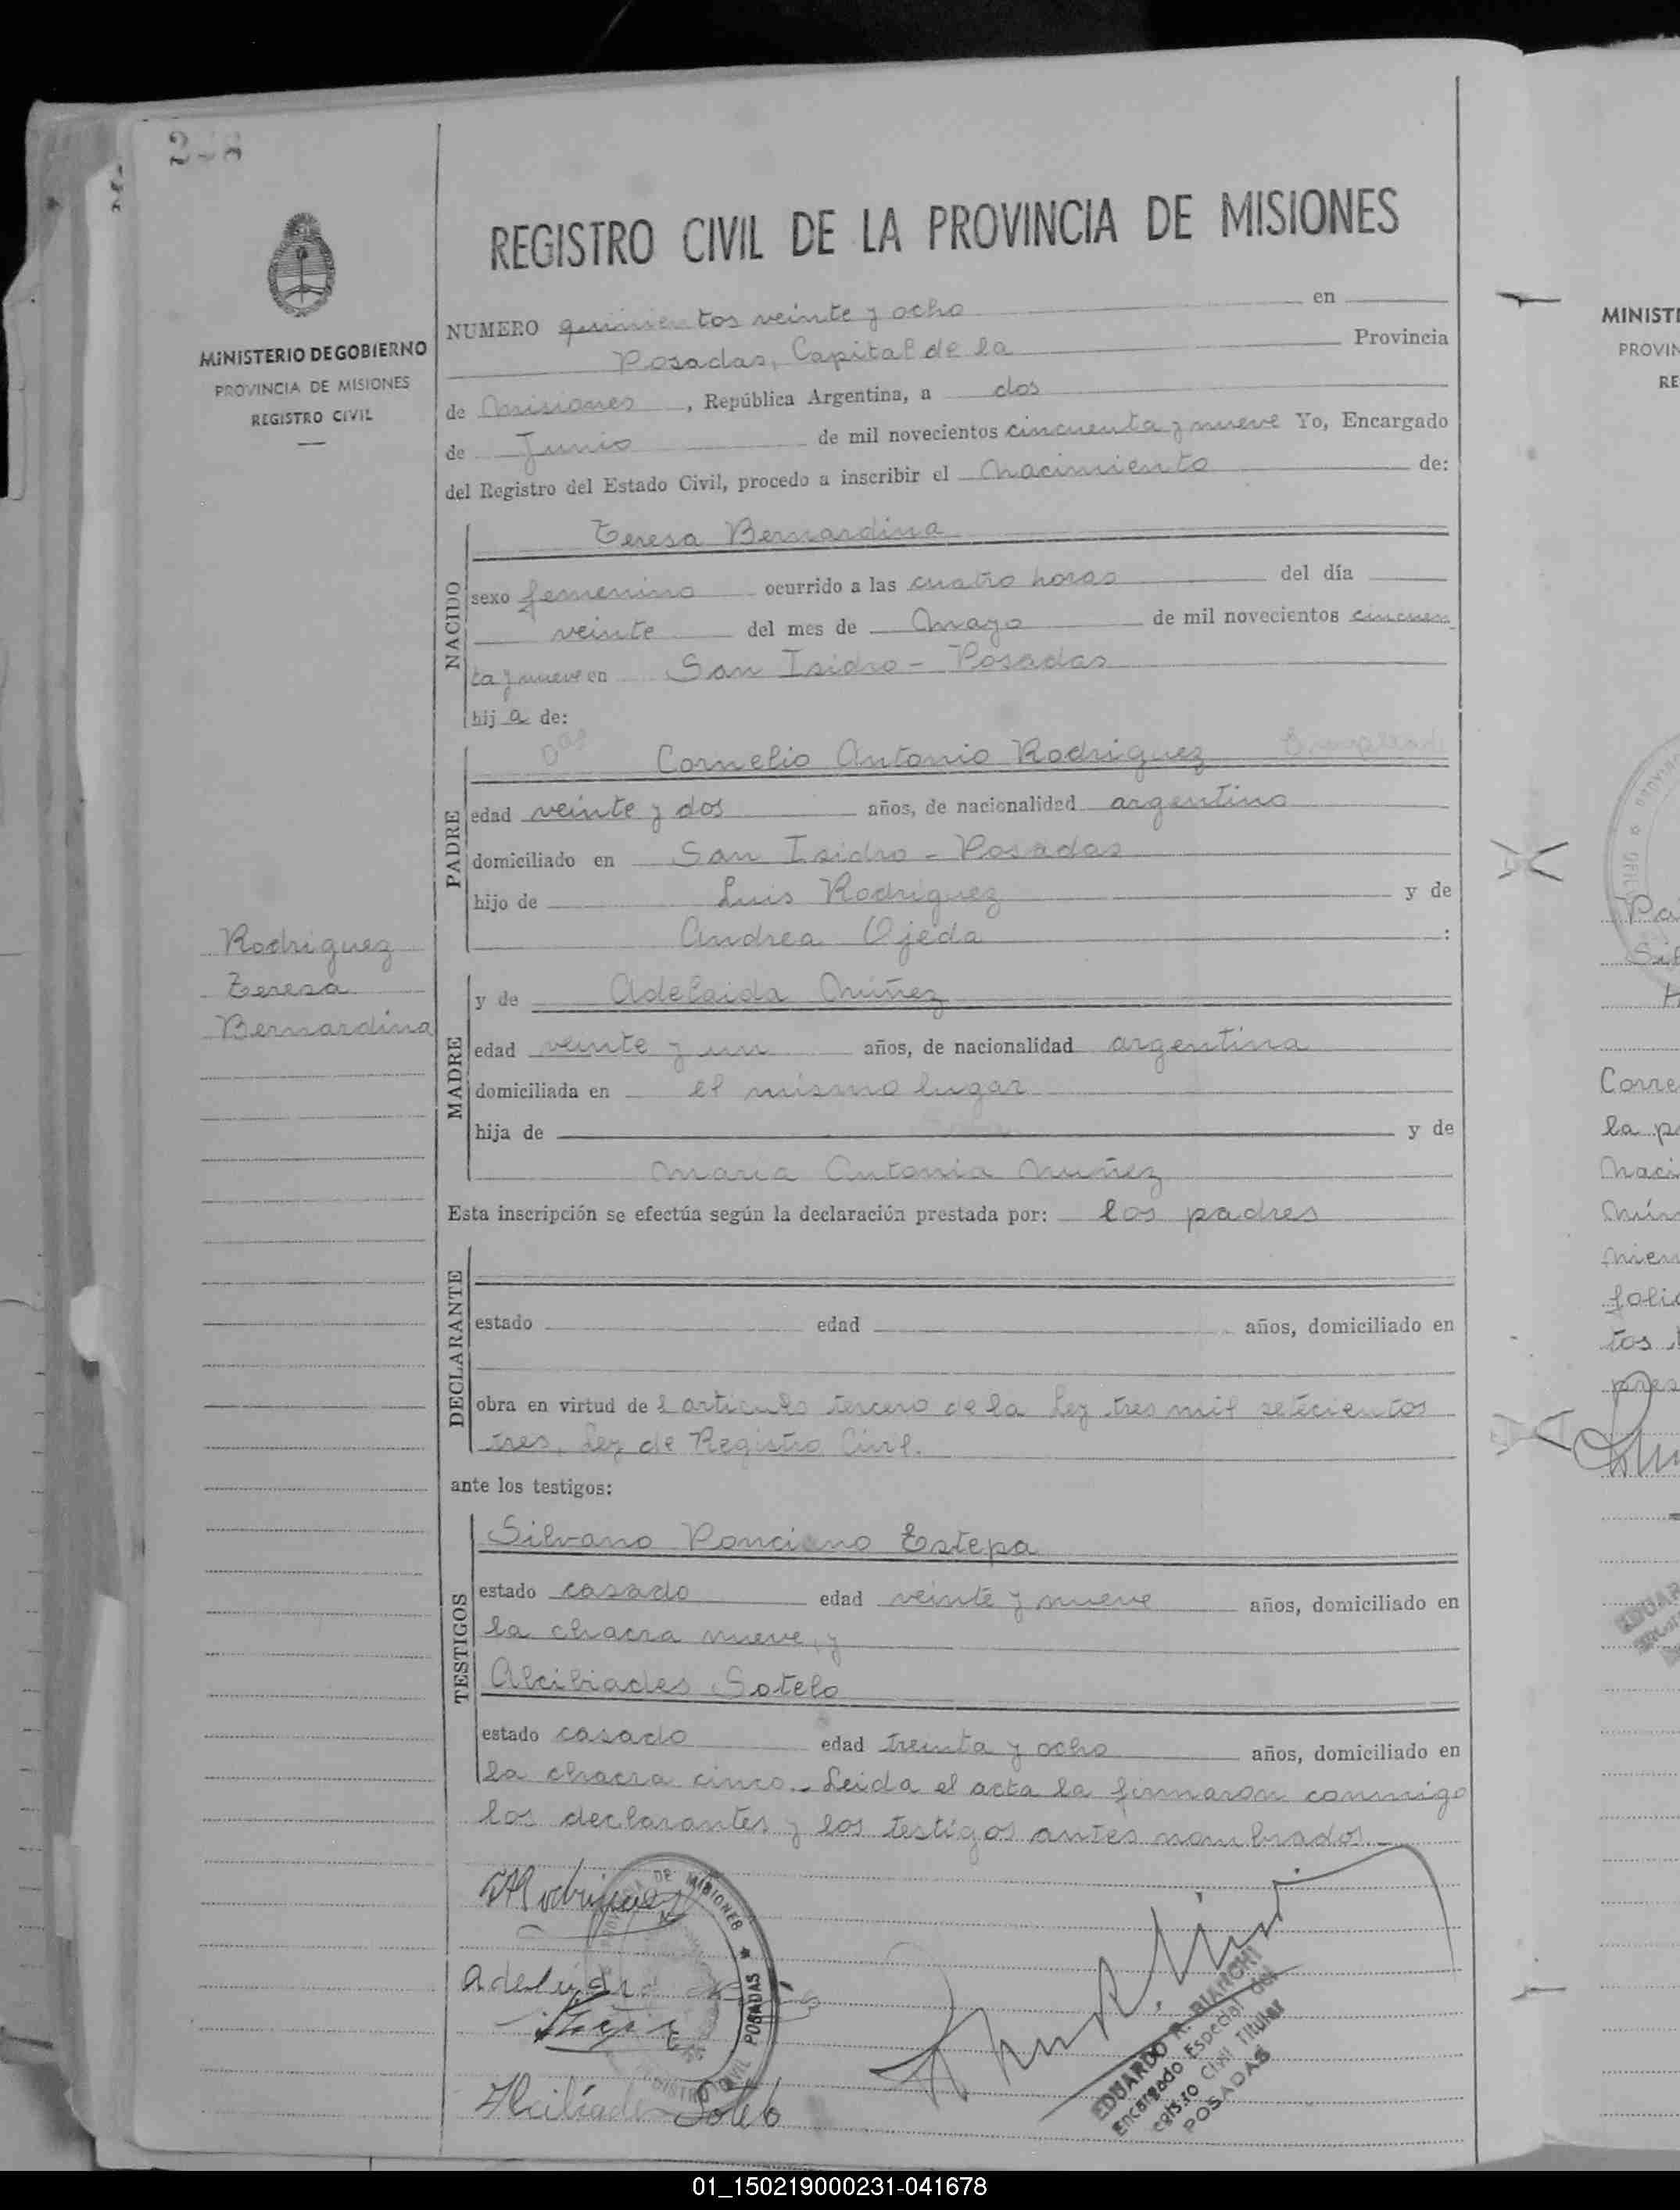 REGISTRO CIVIL DE LA PROVINCIA DE MISIONES
MINISTERIO DE GOBIERNO
PROVINCIA DE MISIONES
REGISTRO CIVIL
NUMERO quinientos veinte y ocho en
Posadas, Capital de la Provincia
de Misiones, República Argentina, a dos
de Junio de mil novecientos cincuenta y nueve Yo, Encargado
del Registro del Estado Civil, procedo a inscribir el Nacimiento de:
NACIDO
Teresa Bernardina
sexo femenino ocurrido a las cuatro horas del día
veinte del mes de Mayo de mil novecientos cincuen
ta y nueve en San Isidro - Posadas
hij a de:
PADRE
Cornelio Antonio Rodriguez
edad veinte y dos años, de nacionalidad argentino
domiciliado en San Isidro - Posadas
hijo de Luis Rodriguez y de
Andrea Ojeda :
Rodriguez
Teresa
Bernardina
MADRE
y de Adelaida Núñez
edad veinte y un años, de nacionalidad argentina
domiciliada en el mismo lugar
hija de y de
Maria Antonia Nuñez
Esta inscripción se efectúa según la declaración prestada por: los padres
DECLARANTE
estado edad años, domiciliado en
obra en virtud de l articulo tercero de la Ley tres mil setecientos
tres, Ley de Registro Civil.
ante los testigos:
TESTIGOS
Silvano Ponciano Estepa
estado casado edad veinte y nueve años, domiciliado en
la chacra nueve, y
Alcibiades Sotelo
estado casado edad treinta y ocho años, domiciliado en
la chacra cinco.- Leida el acta la firmaron conmigo
los declarantes y los testigos antes nombrados.-
Rodriguez
Adelaida
DE MISIONES ★ POSADAS
Alcibiades Sotelo
EDUARDO R. BIANCHI
Encargado Especial del
Civil Titular
POSADAS
MINIST
PROVIN
RE
Corre
la p
Naci
folio
tos
01_150219000231-041678